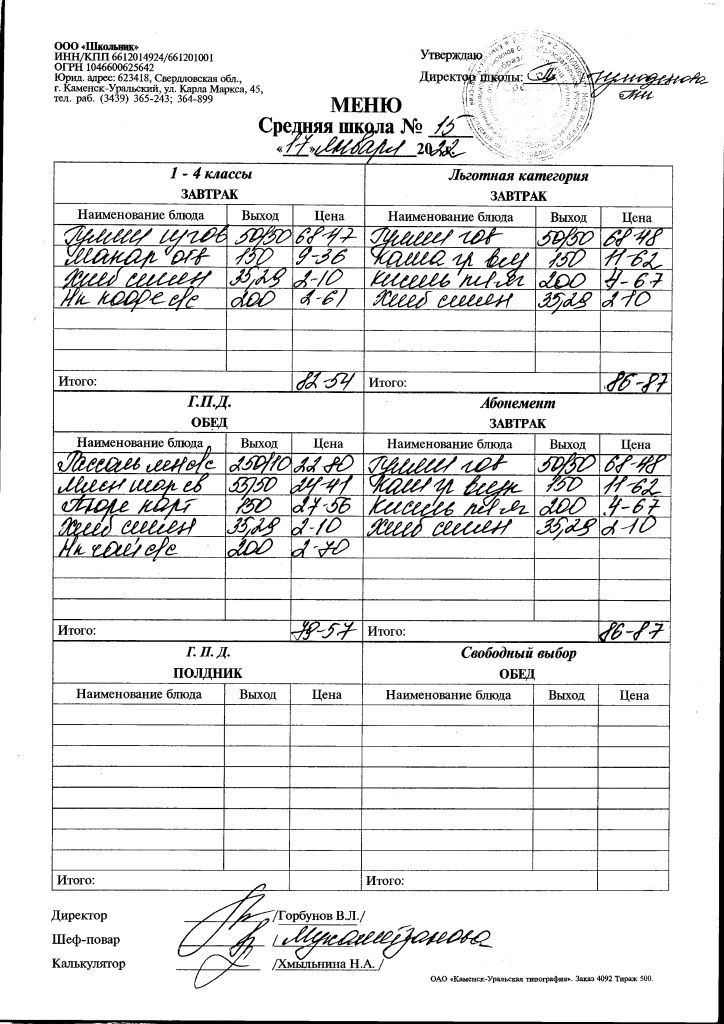 ООО «Школьник»
ИНН/КПП 6612014924/661201001
ОГРН 1046600625642
Юрид. адрес: 623418, Свердловская обл.,
г. Каменск-Уральский, ул. Карла Маркса, 45,
тел. раб. (3439) 365-243; 364-899
Утверждаю
Директор школы:
МЕНЮ
Средняя школа № 15
«17» января 2022
1 - 4 классы
ЗАВТРАК
Наименование блюда Выход Цена
Гуляш 50/50 68-47
Макар отв 150 9-36
Хлеб 35,29 2-10
Нк с/с 200 2-61
Итого: 82-54
Льготная категория
ЗАВТРАК
Наименование блюда Выход Цена
Гуляш гов 50/50 68-48
Каша гр 150 11-62
Кисель 200 4-67
Хлеб 35,29 2-10
Итого: 86-87
Г.П.Д.
ОБЕД
Наименование блюда Выход Цена
Рассоль с/с 250/10 22-80
50 24-41
Пюре карт 150 27-56
Хлеб 35,29 2-10
Нк чай с/с 200 2-70
Итого: 79-57
Абонемент
ЗАВТРАК
Наименование блюда Выход Цена
Гуляш гов 50/50 68-48
Каша гр 150 11-62
Кисель 200 4-67
Хлеб 35,29 2-10
Итого: 86-87
Г. П. Д.
ПОЛДНИК
Наименование блюда Выход Цена
Итого:
Свободный выбор
ОБЕД
Наименование блюда Выход Цена
Итого:
Директор /Горбунов В.Л./
Шеф-повар /
Калькулятор /Хмыльнина Н.А. /
ОАО «Каменск-Уральская типография». Заказ 4092 Тираж 500.